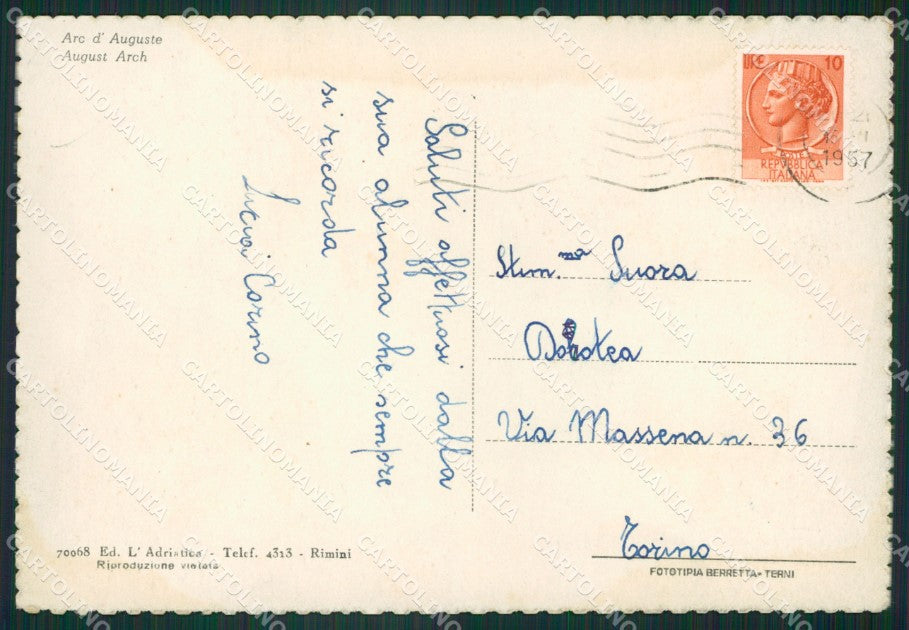 Arc d' Auguste
August Arch
LIRE 10
POSTE
REPUBBLICA
ITALIANA
1957
Saluti affettuosi dalla
sua alunna che sempre
si ricorda
Corino
Stim.ma Suora
Dorotea
Via Massena n. 36
Torino
70068 Ed. L' Adriatica - Telef. 4313 - Rimini
Riproduzione vietata
FOTOTIPIA BERRETTA - TERNI
CARTOLINOMANIA